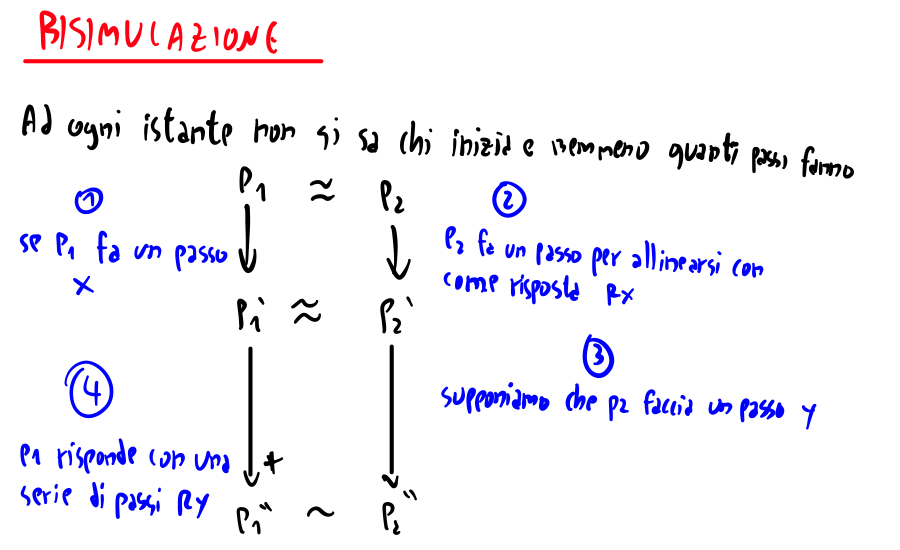 BISIMULAZIONE
Ad ogni istante non si sa chi inizia e nemmeno quanti passi fanno
P1 ≈ P2
①
se P1 fa un passo
x
②
P2 fa un passo per allinearsi con
come risposta Rx
P1' ≈ P2'
③
supponiamo che P2 faccia un passo y
④
P1 risponde con una
serie di passi Ry
+
P1'' ~ P2''